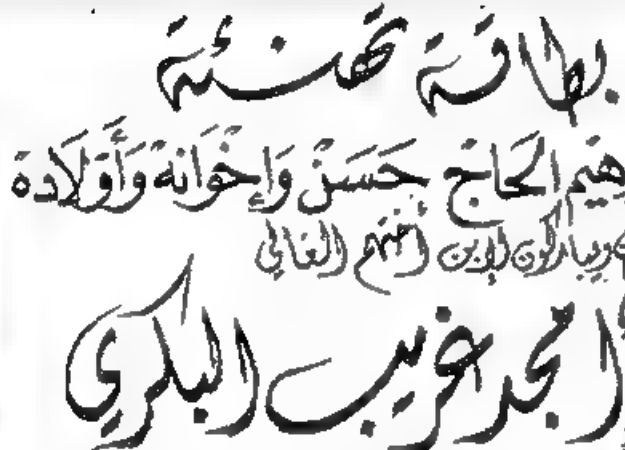 بطاقة تهنئة
الحاج حَسَنْ وَإِخْوَانه وَأَوْلَاده
ويباركون لإبن أختهم الغالي
امجد غريب البكري